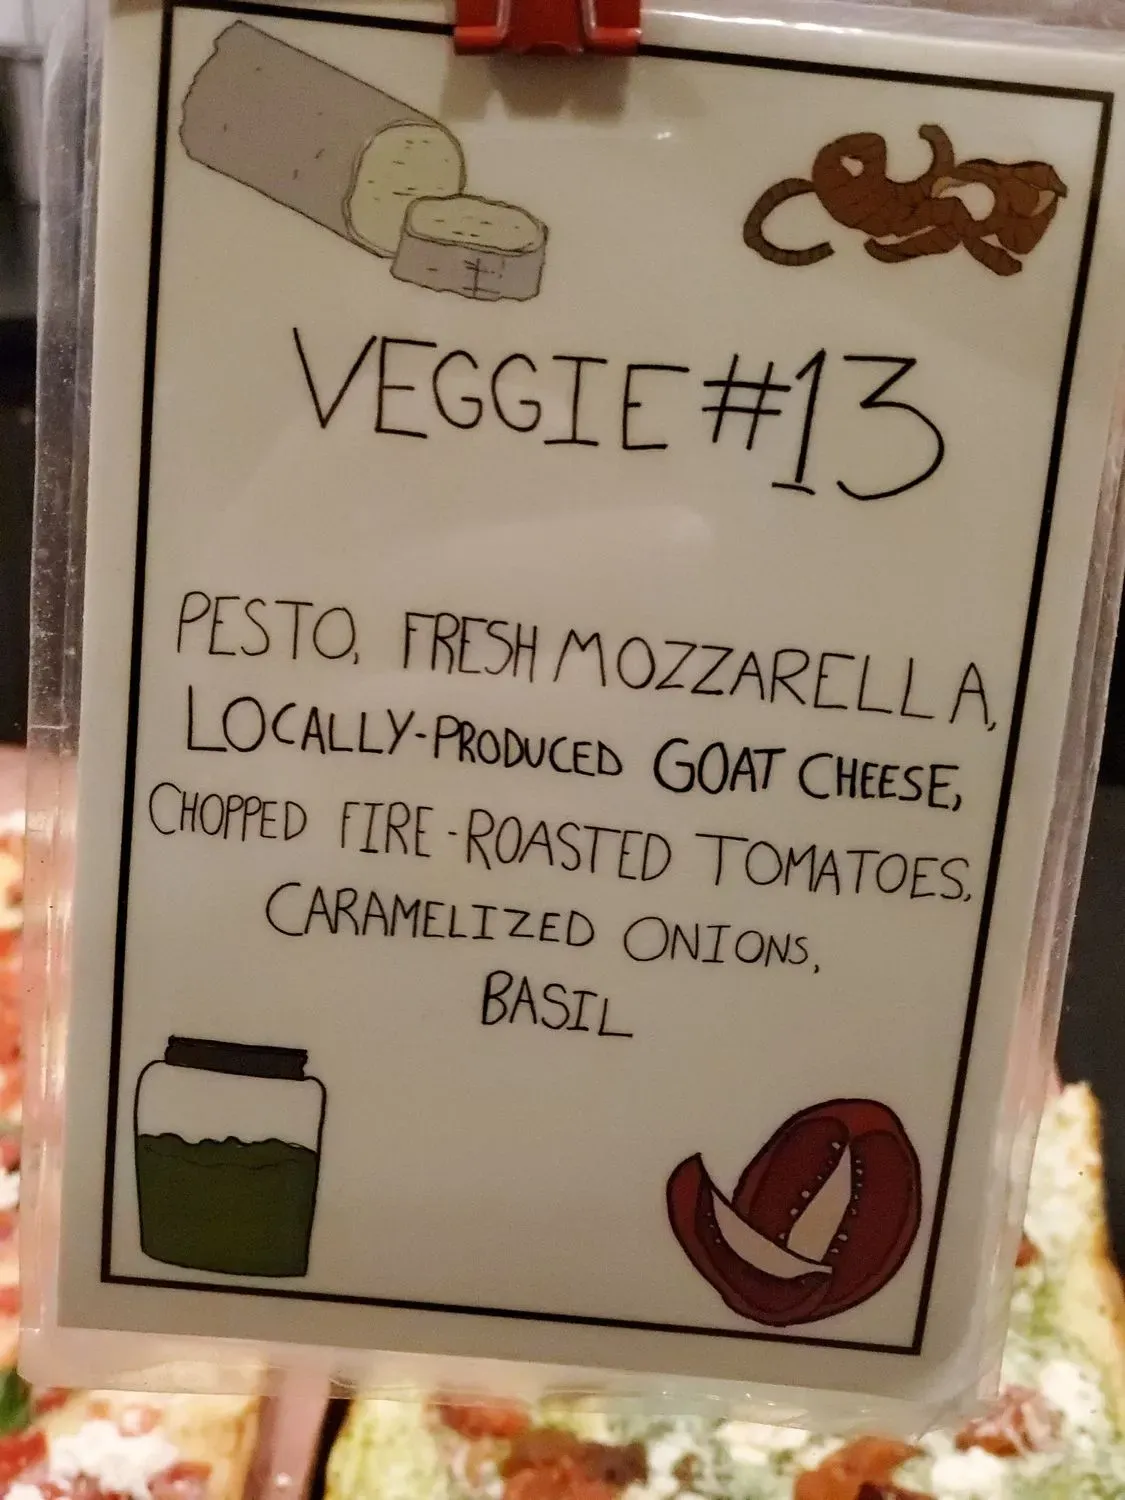 VEGGIE #13
PESTO, FRESH MOZZARELLA,
LOCALLY-PRODUCED GOAT CHEESE,
CHOPPED FIRE-ROASTED TOMATOES,
CARAMELIZED ONIONS,
BASIL